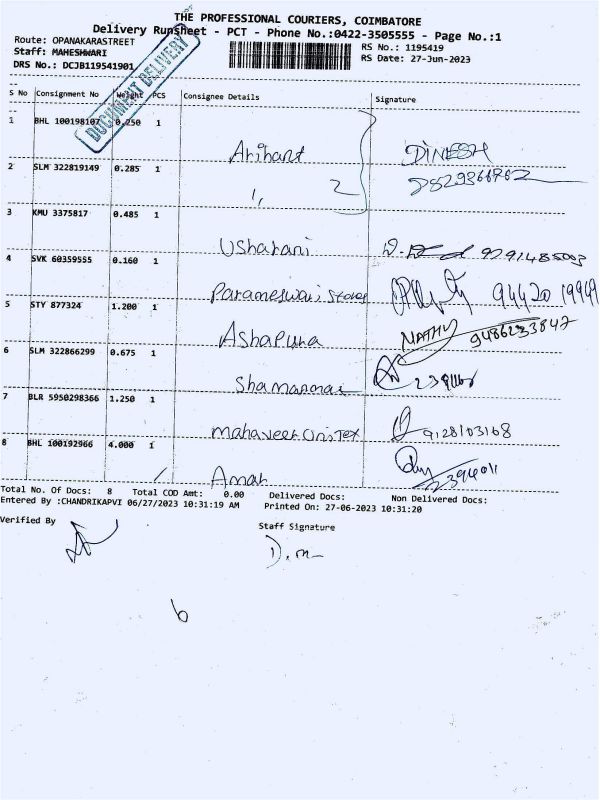 THE PROFESSIONAL COURIERS, COIMBATORE
Delivery Runsheet - PCT - Phone No.:0422-3505555 - Page No.:1
Route: OPANAKARASTREET
RS No.: 1195419
Staff: MAHESHWARI
RS Date: 27-Jun-2023
DRS No.: DCJB119541901
DOCUMENT DELIVERY
S No Consignment No Weight PCS Consignee Details Signature
1 BHL 100198107 0.250 1
Arihant DINESH
2 SLM 322819149 0.285 1
1, 2
3 KMU 3375817 0.485 1
Usharani
4 SVK 60359555 0.160 1
Parameswari Stores 94420 19949
5 STY 877324 1.200 1
Ashapura MATHU 9486233847
6 SLM 322866299 0.675 1
7 BLR 5950298366 1.250 1
mahaveer Unitex 9128103168
8 BHL 100192966 4.000 1
Aman
Total No. Of Docs: 8 Total COD Amt: 0.00 Delivered Docs: Non Delivered Docs:
Entered By :CHANDRIKAPVI 06/27/2023 10:31:19 AM Printed On: 27-06-2023 10:31:20
Verified By
Staff Signature